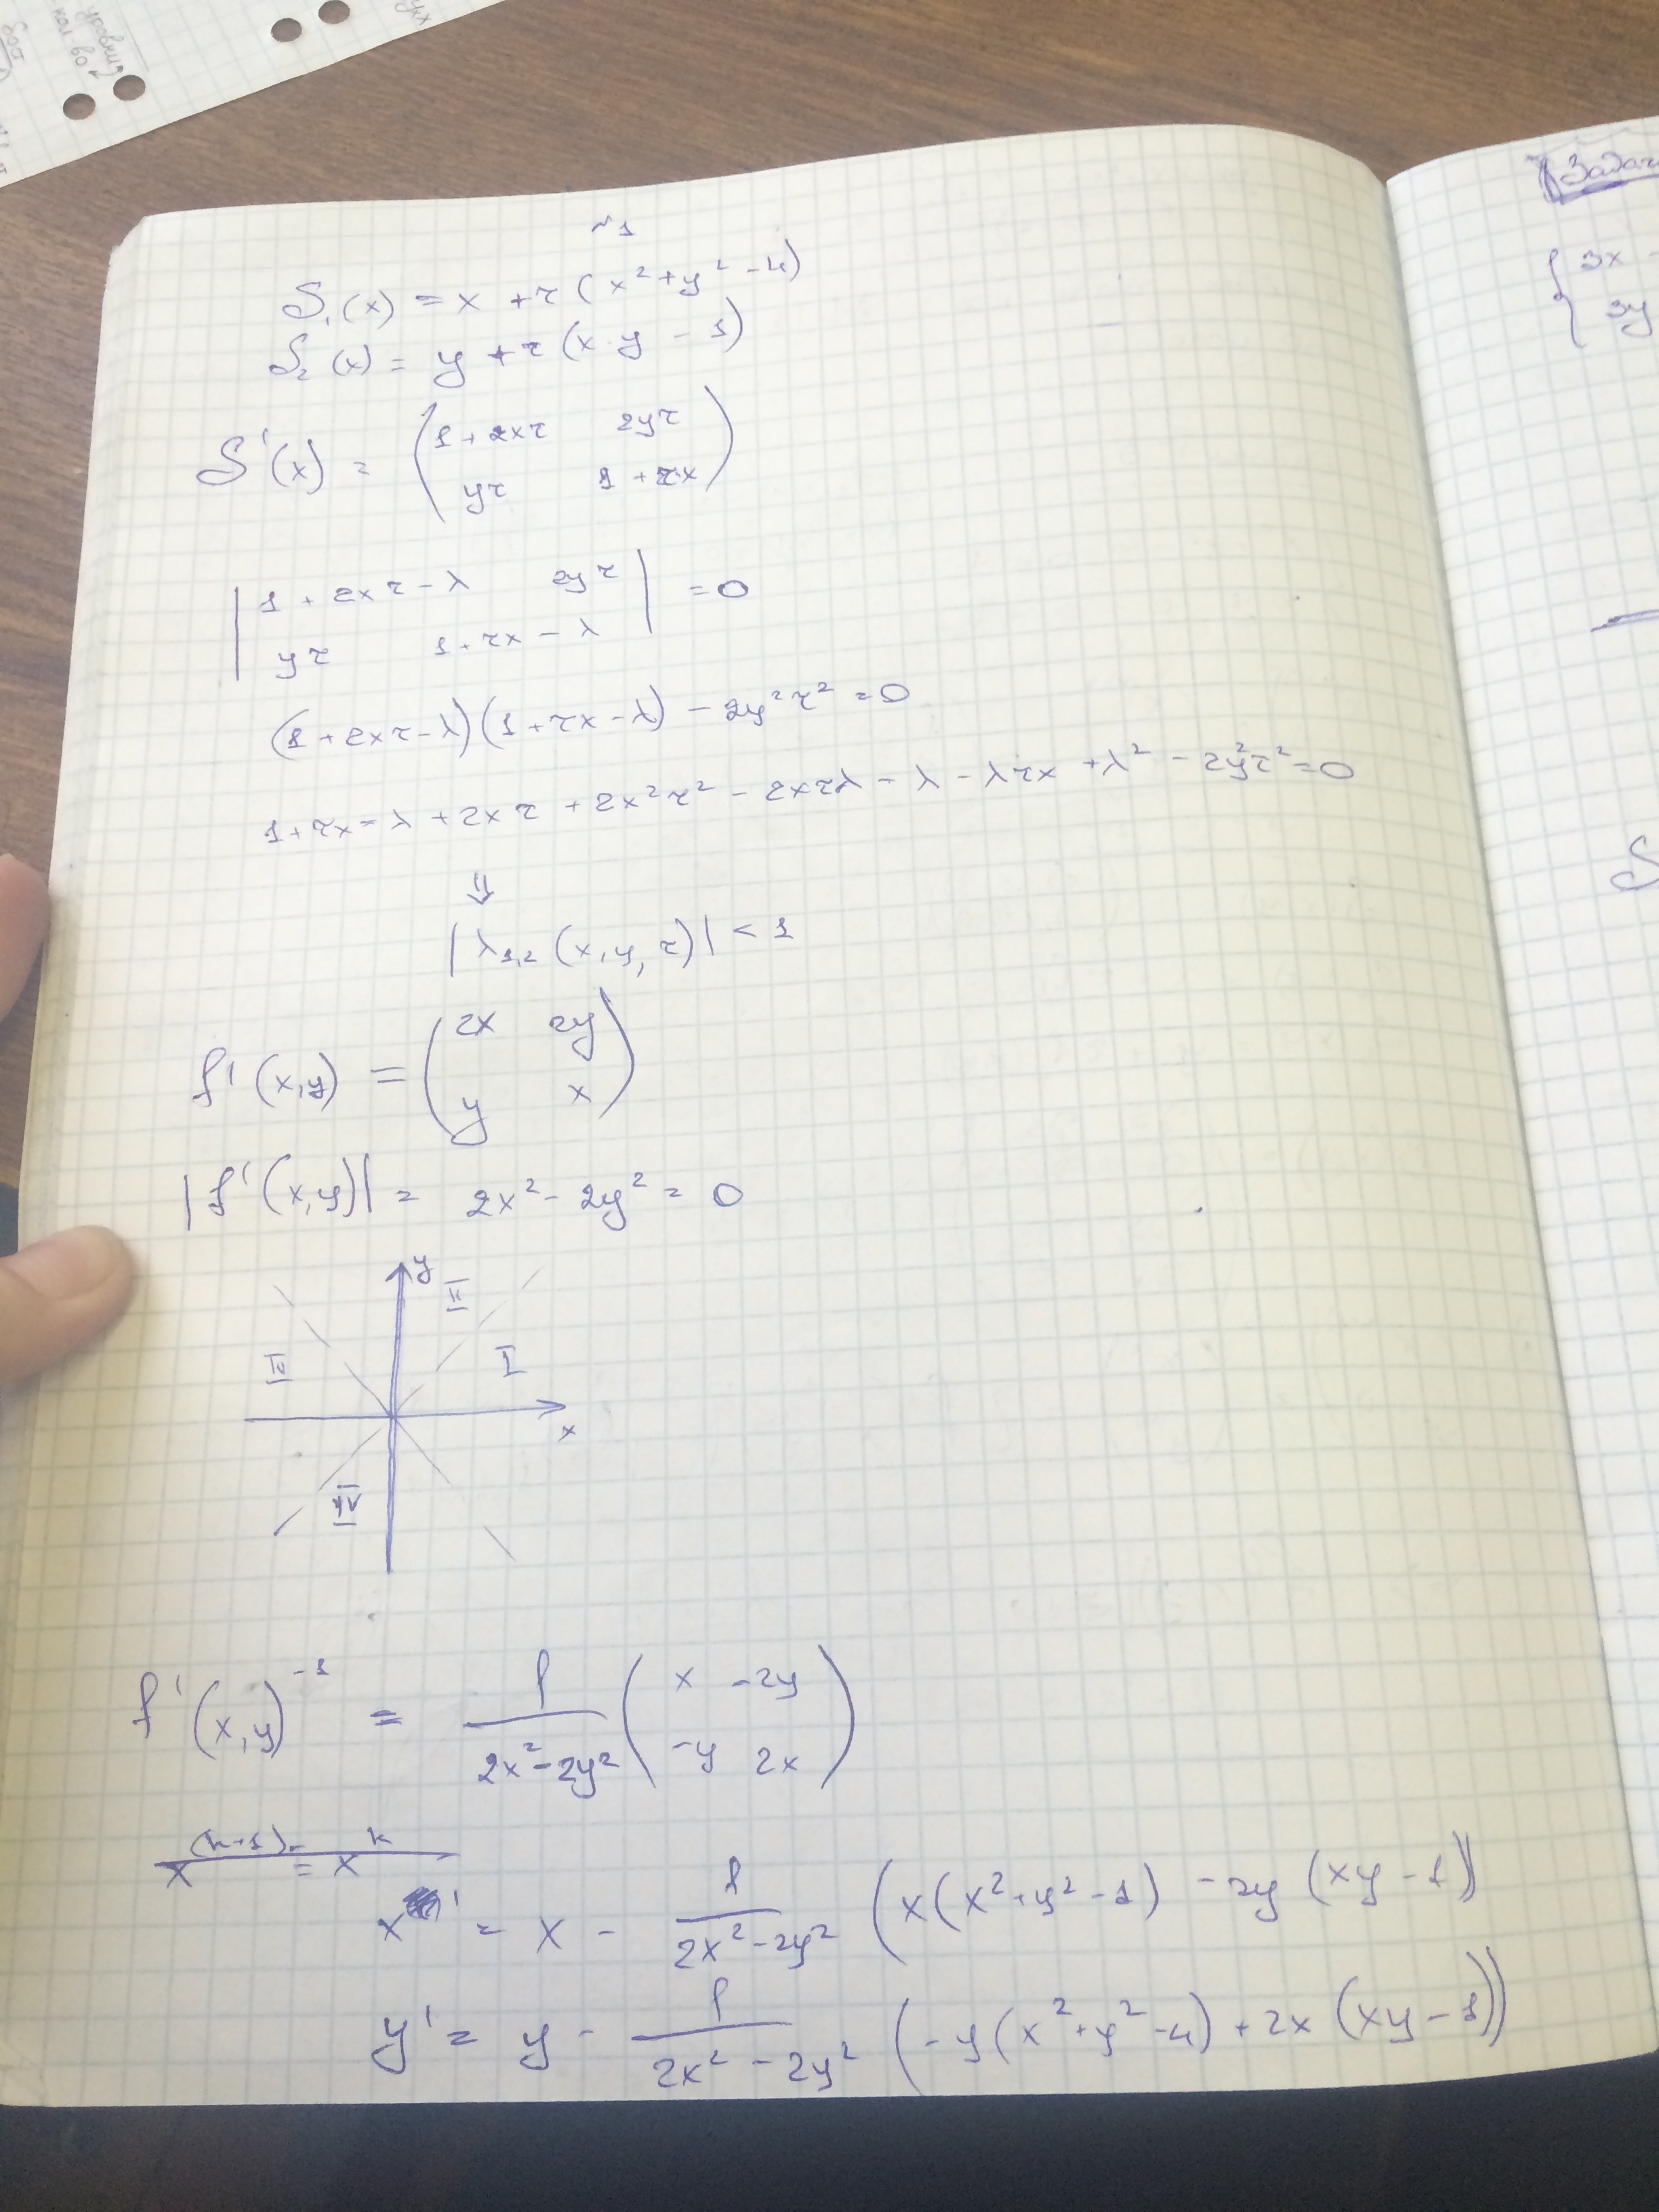 уровни
кол-во
N1
S₁(x) = x + τ(x² + y² - 4)
S₂(x) = y + τ(x·y - 1)
S'(x) = (1 + 2xτ 2yτ
yτ 1 + τx)
|1 + 2xτ - λ 2yτ
yτ 1 + τx - λ| = 0
(1 + 2xτ - λ)(1 + τx - λ) - 2y²τ² = 0
1 + τx - λ + 2xτ + 2x²τ² - 2xτλ - λ - λτx + λ² - 2y²τ² = 0
⇓
|λ₁,₂(x, y, τ)| < 1
f'(x,y) = (2x 2y
y x)
|f'(x,y)| = 2x² - 2y² = 0
y
II
III
I
x
IV
f'(x,y)⁻¹ = 1/(2x² - 2y²) (x -2y
-y 2x)
x⁽ᵏ⁺¹⁾ = xᵏ
x' = x - 1/(2x² - 2y²) (x(x² + y² - 1) - 2y(xy - 1))
y' = y - 1/(2x² - 2y²) (-y(x² + y² - 4) + 2x(xy - 1))
{3x
3y
S